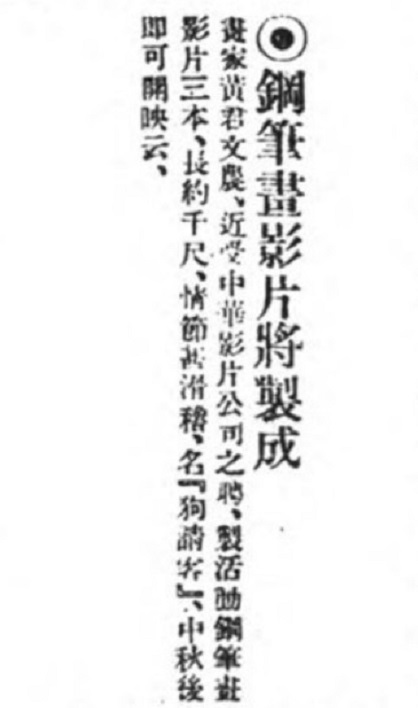 ◉鋼筆畫影片將製成
畫家黃君文農、近受中華影片公司之聘、製活動鋼筆畫
影片三本、長約千尺、情節甚滑稽、名『狗請客』、中秋後
即可開映云、